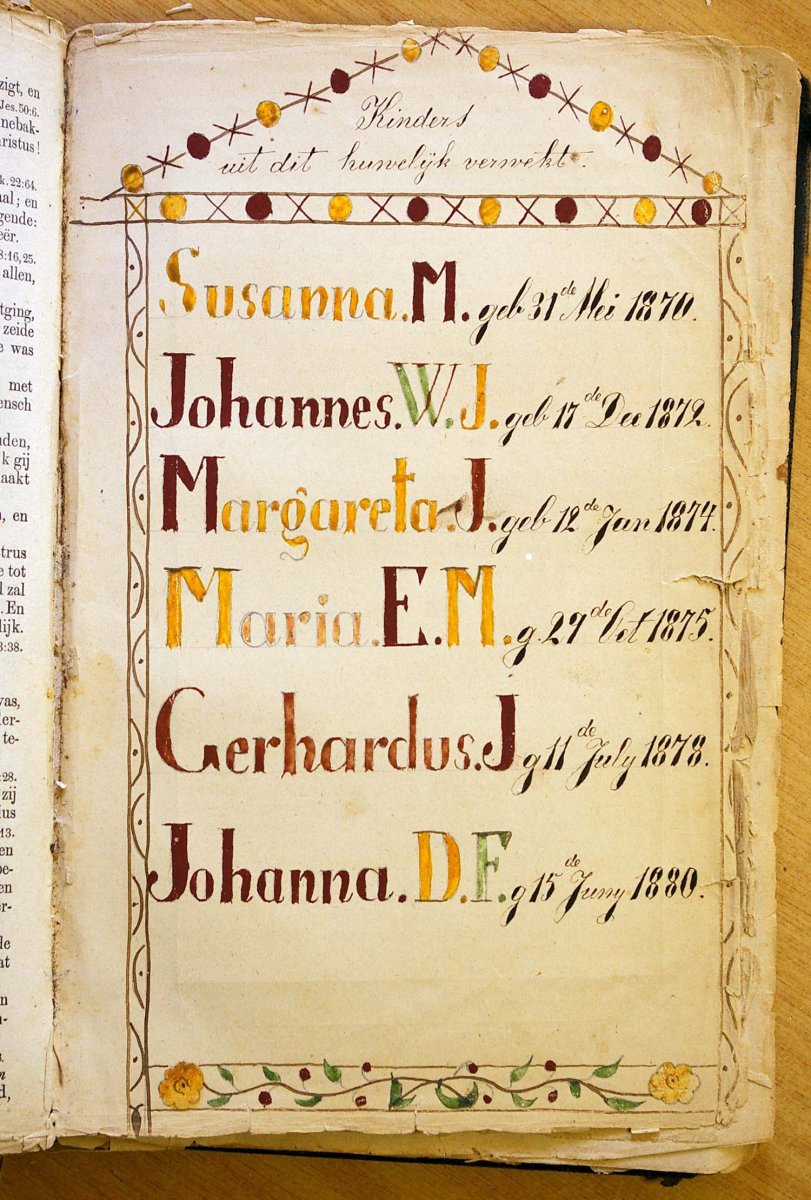 zigt, en
Jes. 50:6.
nebak-
ristus!
k. 22:64.
aal; en
gende:
eër.
8:16, 25.
allen,
tging,
zeide
e was
met
ensch
nden,
k gij
aakt
n, en
trus
e tot
l zal
. En
lijk.
3:38.
vas,
der-
te-
:28.
zij
ius
13.
en
be-
en
er-
de
at
n
n-
d,
Kinders
uit dit huwelijk verwekt.
Susanna. M. geb 31de Mei 1870.
Johannes. W. J. geb 17de Dec 1872.
Margareta. J. geb 12de Jan 1874.
Maria. E. M. g. 29de Oct 1875.
Gerhardus. J g 11de July 1878.
Johanna. D. F. g 15de Juny 1880.